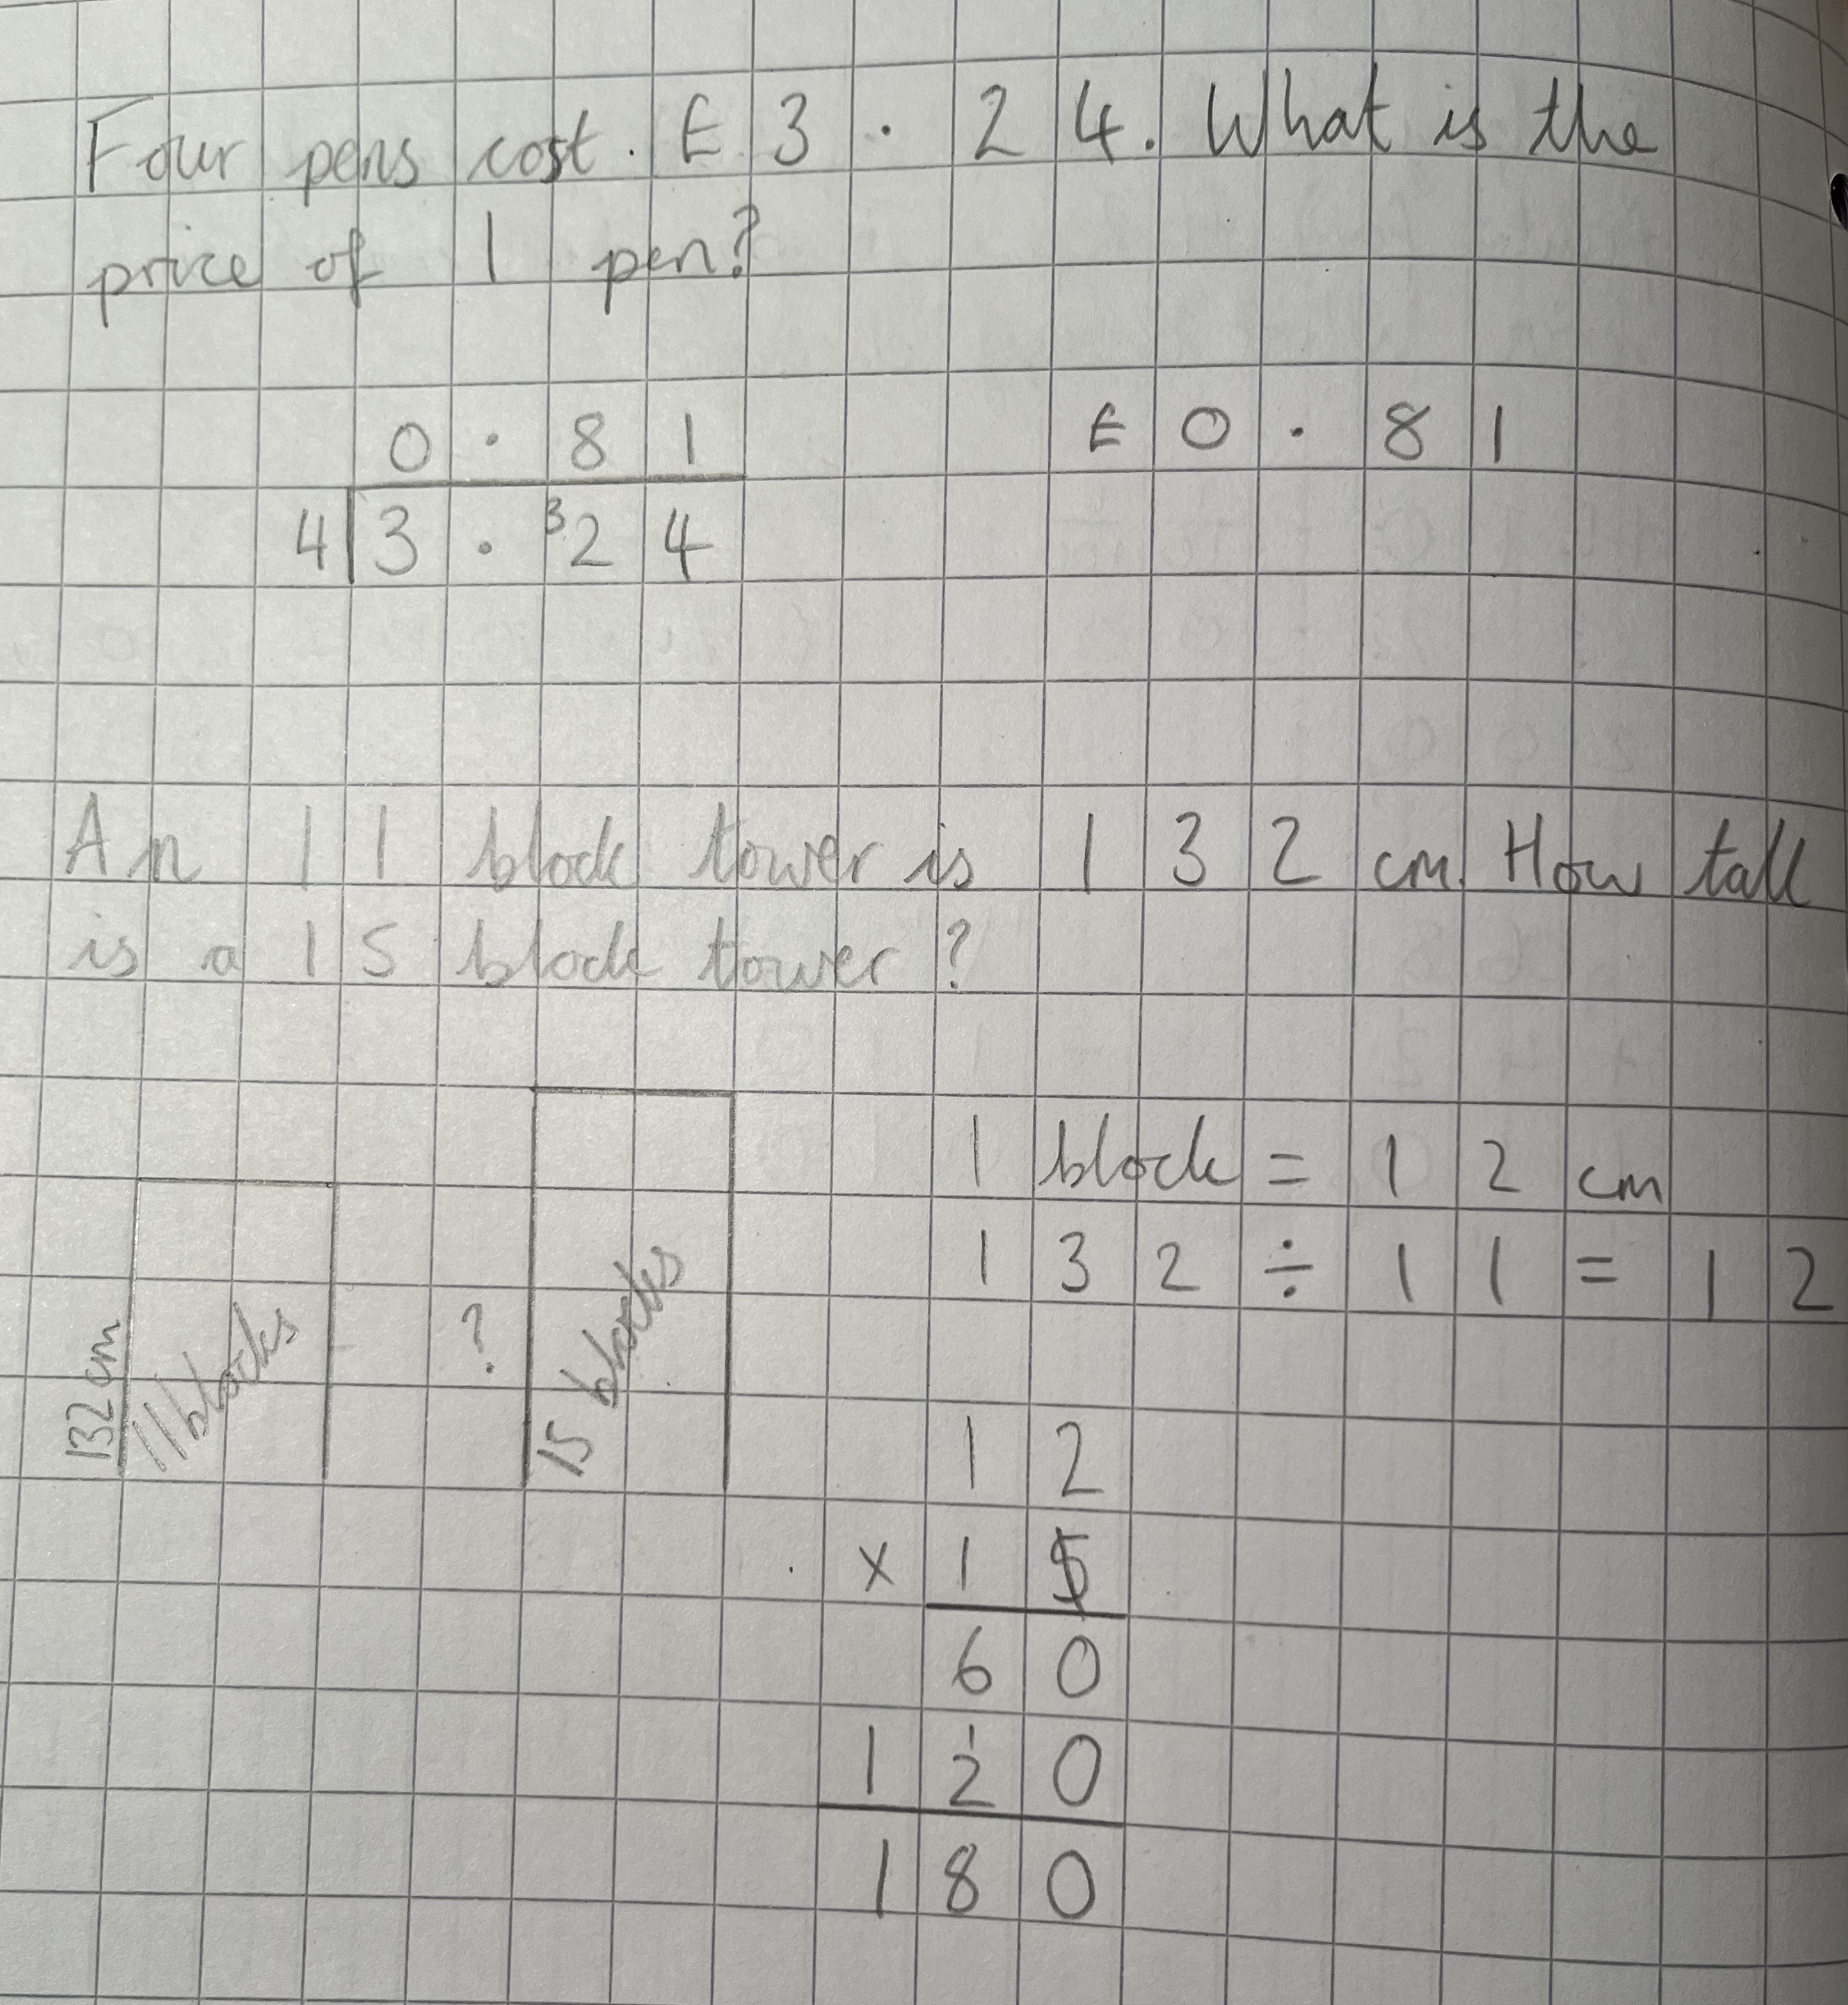 Four pens cost. £ 3 . 2 4. What is the
price of 1 pen?
0 . 8 1
£ 0 . 8 1
4 3 . 3 2 4
An 11 block tower is 132 cm. How tall
is a 15 block tower?
132 cm
11 blocks
?
15 blocks
1 block = 12 cm
132 ÷ 11 = 12
12
× 15
60
1
120
180